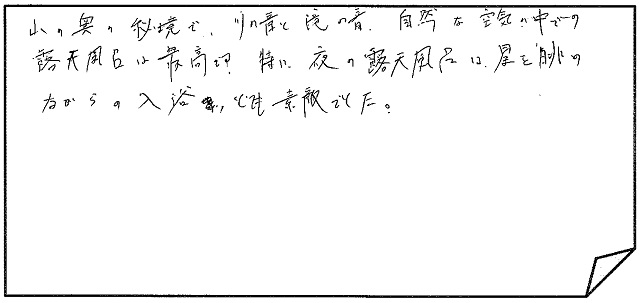 山の奥の秘境で、川の音と滝の音、自然な空気の中での
露天風呂は最高です 特に、夜の露天風呂は、星を眺め
ながらの入浴は、とても素敵でした。